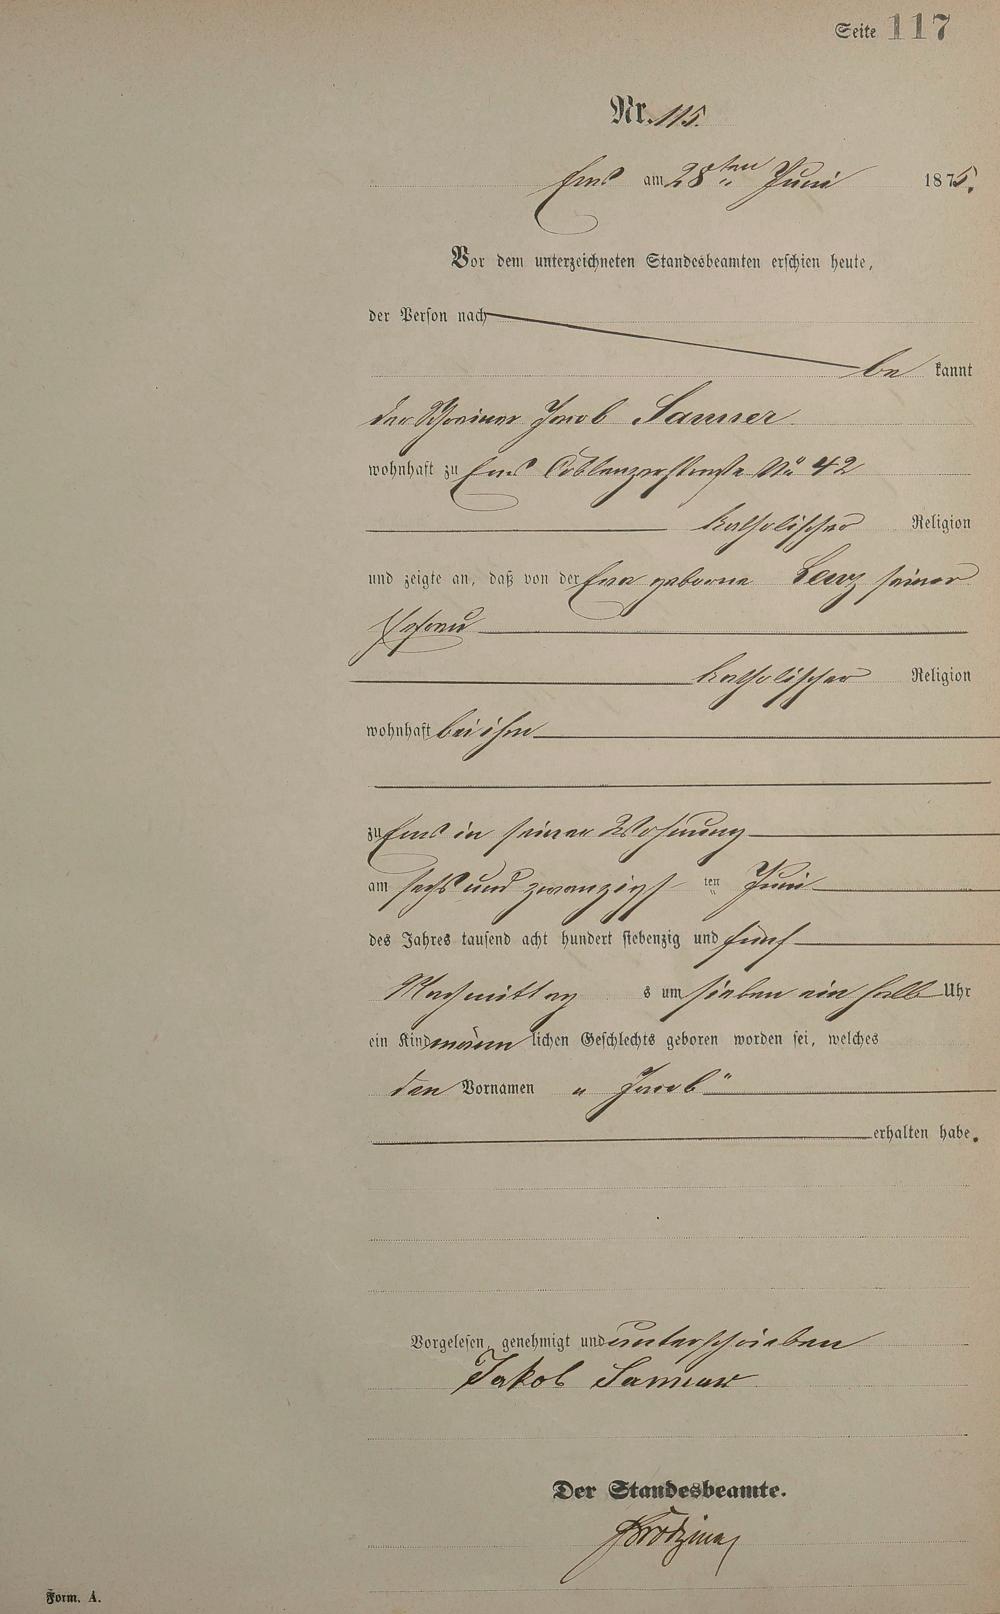 Seite 117
Nr. 115.
Ems am 28ten Juni 1875.
Vor dem unterzeichneten Standesbeamten erschien heute,
der Person nach
be kannt
der Schreiner Jacob Sanner
wohnhaft zu Ems Coblenzerstraße No 42
katholischer Religion
und zeigte an, daß von der Eva geborne Lenz seiner
Ehefrau
katholischer Religion
wohnhaft bei ihm
zu Ems in seiner Wohnung
am sechs und zwanzigst ten Juni
des Jahres tausend acht hundert siebenzig und fünf
Nachmittag s um sieben ein halb Uhr
ein Kind männ lichen Geschlechts geboren worden sei, welches
den Vornamen „Jacob"
erhalten habe.
Vorgelesen, genehmigt und unterschrieben
Jakob Sanner
Der Standesbeamte.
Form. A.